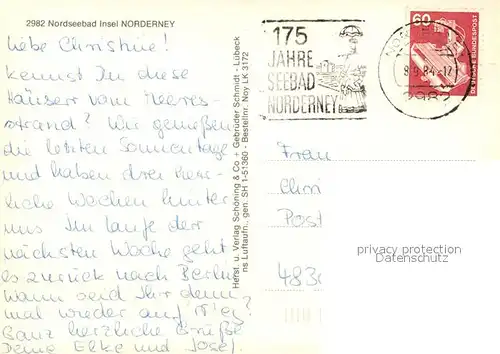 2982 Nordseebad Insel NORDERNEY
liebe Christine!
kennst Du diese
Häuser vom Meeres-
strand? Wir genießen
die letzten Sonnentage
und haben drei herr-
liche Wochen hinter
uns. Im laufe der
nächsten Woche geht
es zurück nach Berlin.
Wann seid Ihr denn
mal wieder auf N'ey?
Ganz herzliche Grüße
Deine Elke und Josef.
Herst. u. Verlag Schöning & Co + Gebrüder Schmidt · Lübeck
ns Luftaufn., gen. SH 1-51360 - Bestellnr. Noy LK 3172
175
JAHRE
SEEBAD
NORDERNEY
8.9.84-17
2982
60
DEUTSCHE BUNDESPOST
Frau
Chri
Post
483
privacy protection
by MA-Shops